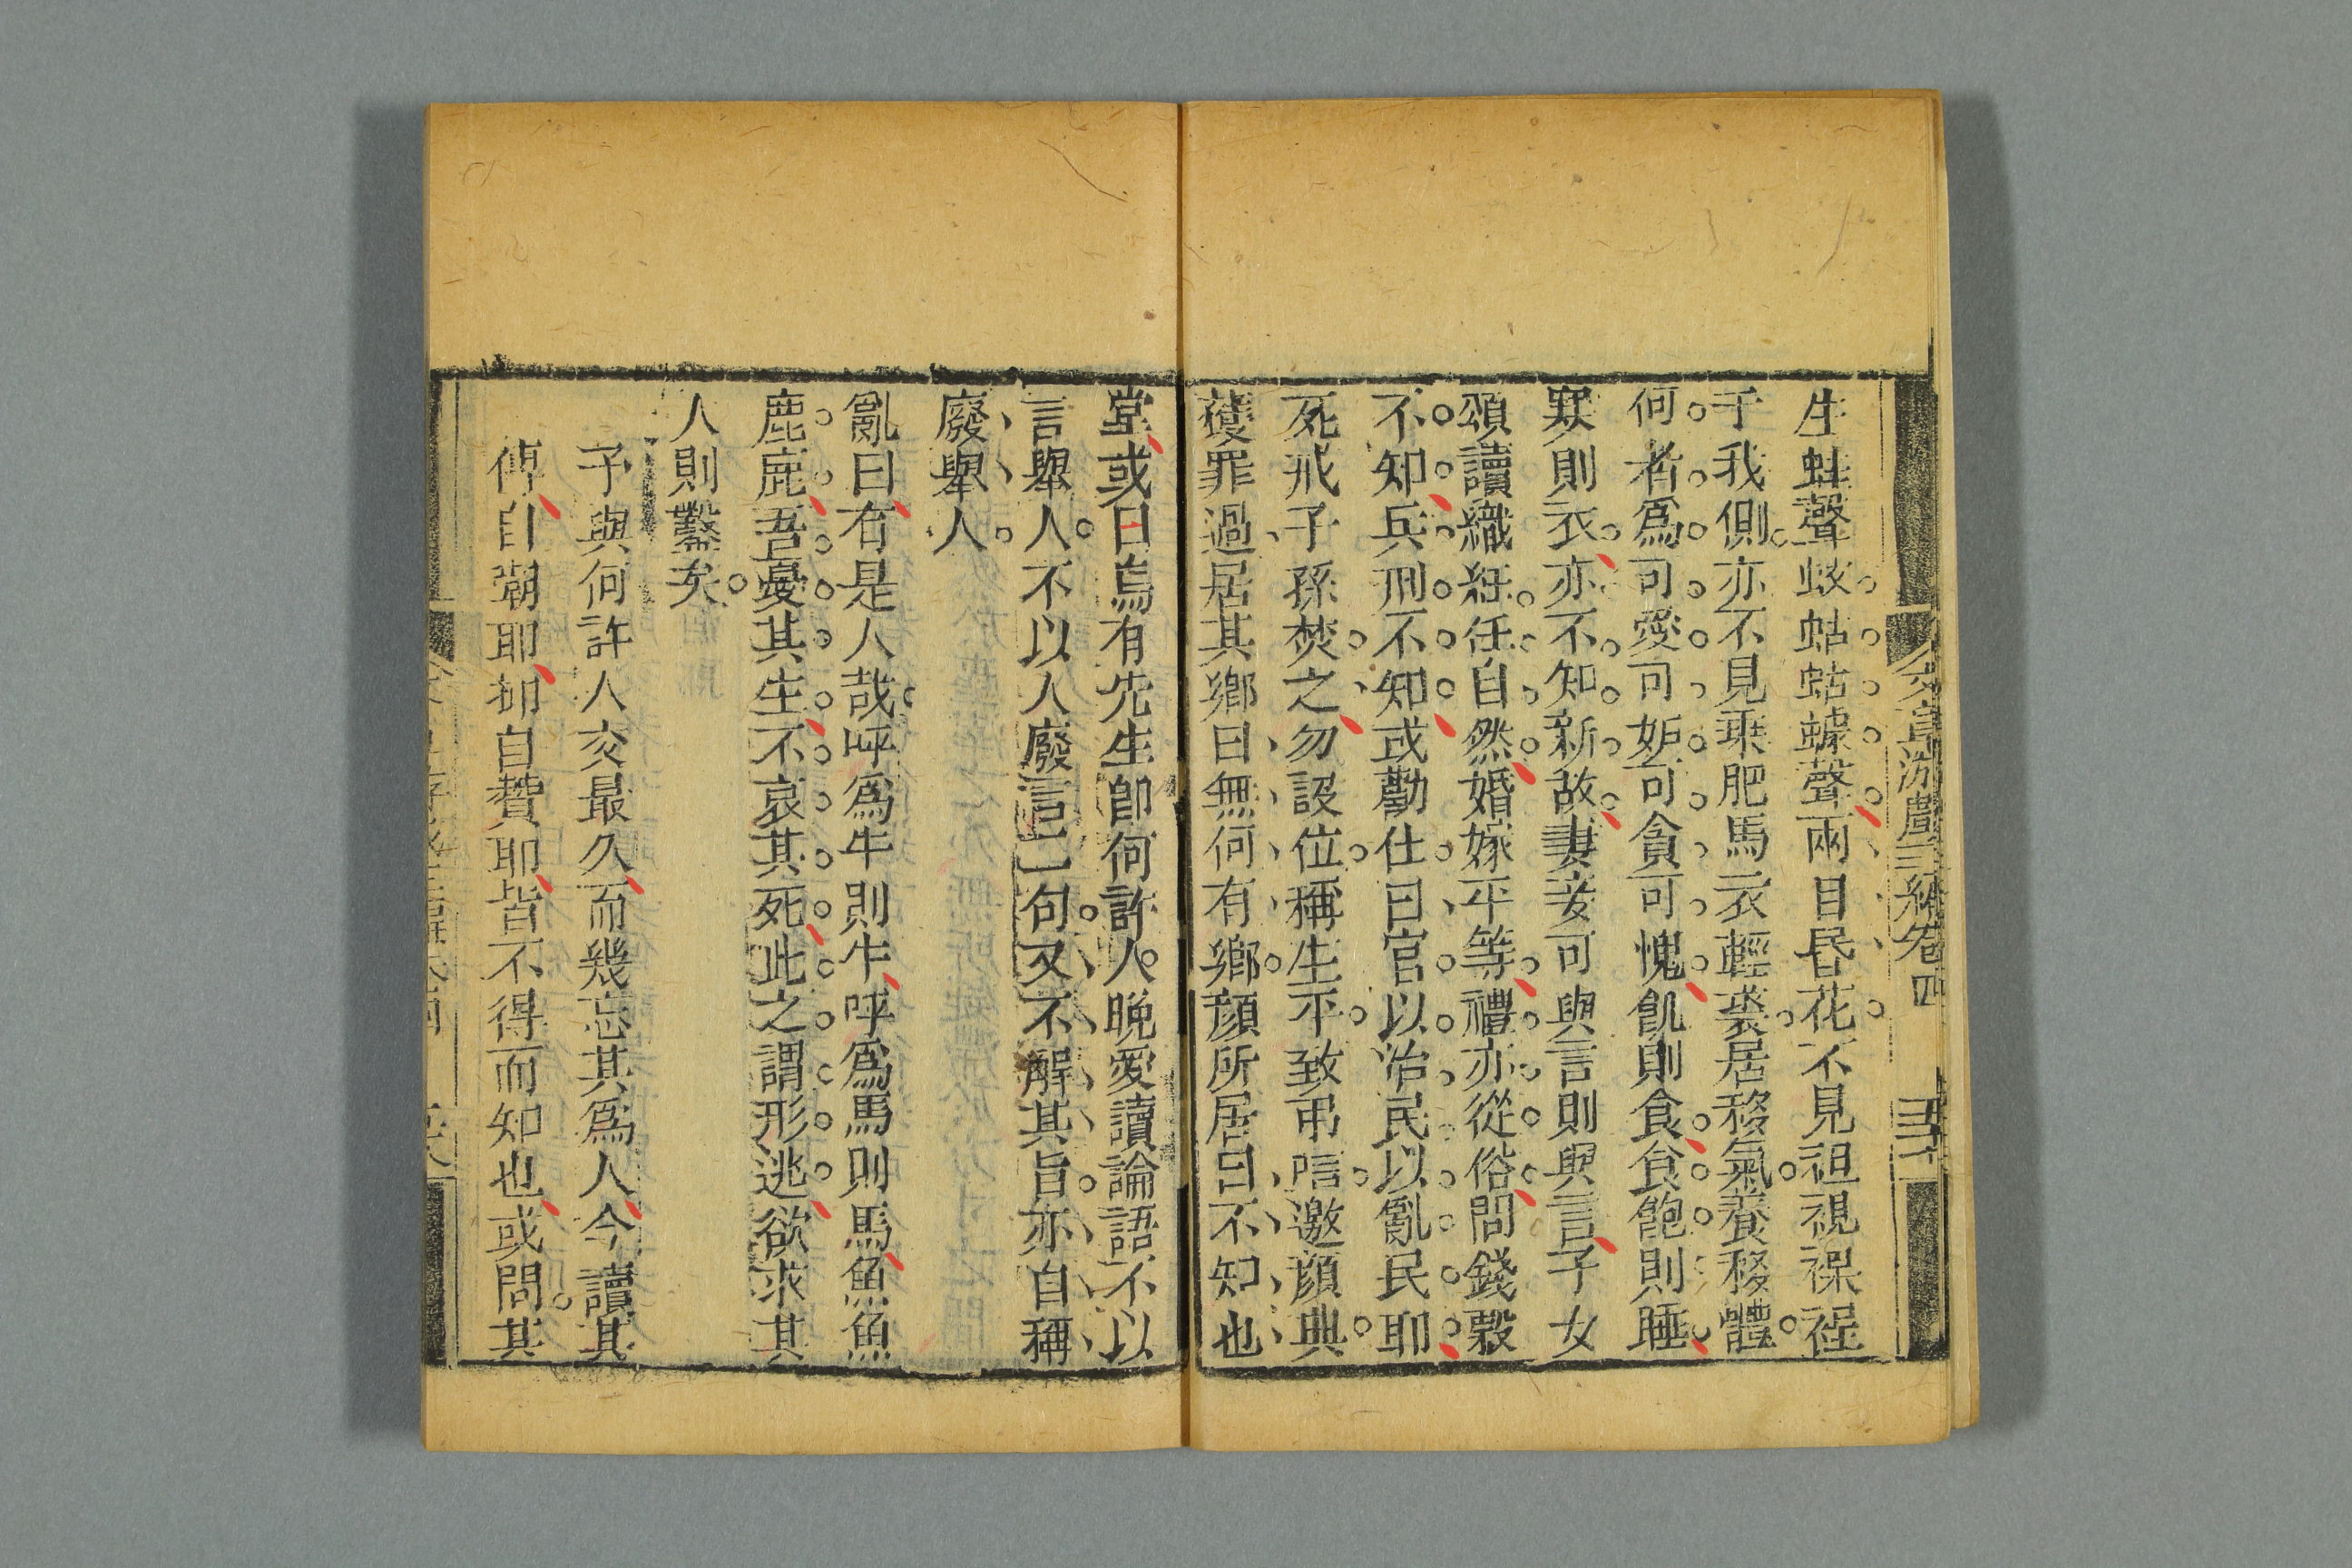 生蛙聲蛟蛄蛄蟝聲兩目昏花不見袒視裸裎
于我側亦不見乘肥馬衣輕裘居移氣養移體
何者爲可愛可妬可貪可愧飢則食食飽則睡
寒則衣亦不知新故妻妾可與言則與言子女
頌讀織紝任自然婚嫁平等禮亦從俗問錢穀
不知兵刑不知或勸仕曰官以治民以亂民耶
死戒子孫焚之勿設位稱生平致弔唁邀顏典
獲罪過居其鄉曰無何有鄉顏所居曰不知也
堂或曰烏有先生卽何許人晚愛讀論語不以
言舉人不以人廢言二句又不解其旨亦自稱
廢舉人
亂曰有是人哉呼爲牛則牛呼爲馬則馬魚魚
鹿鹿吾憂其生不哀其死此之謂形逃欲求其
人則鑿矣
予與何許人交最久而幾忘其爲人今讀其
傳自嘲耶抑自贊耶皆不得而知也或問其